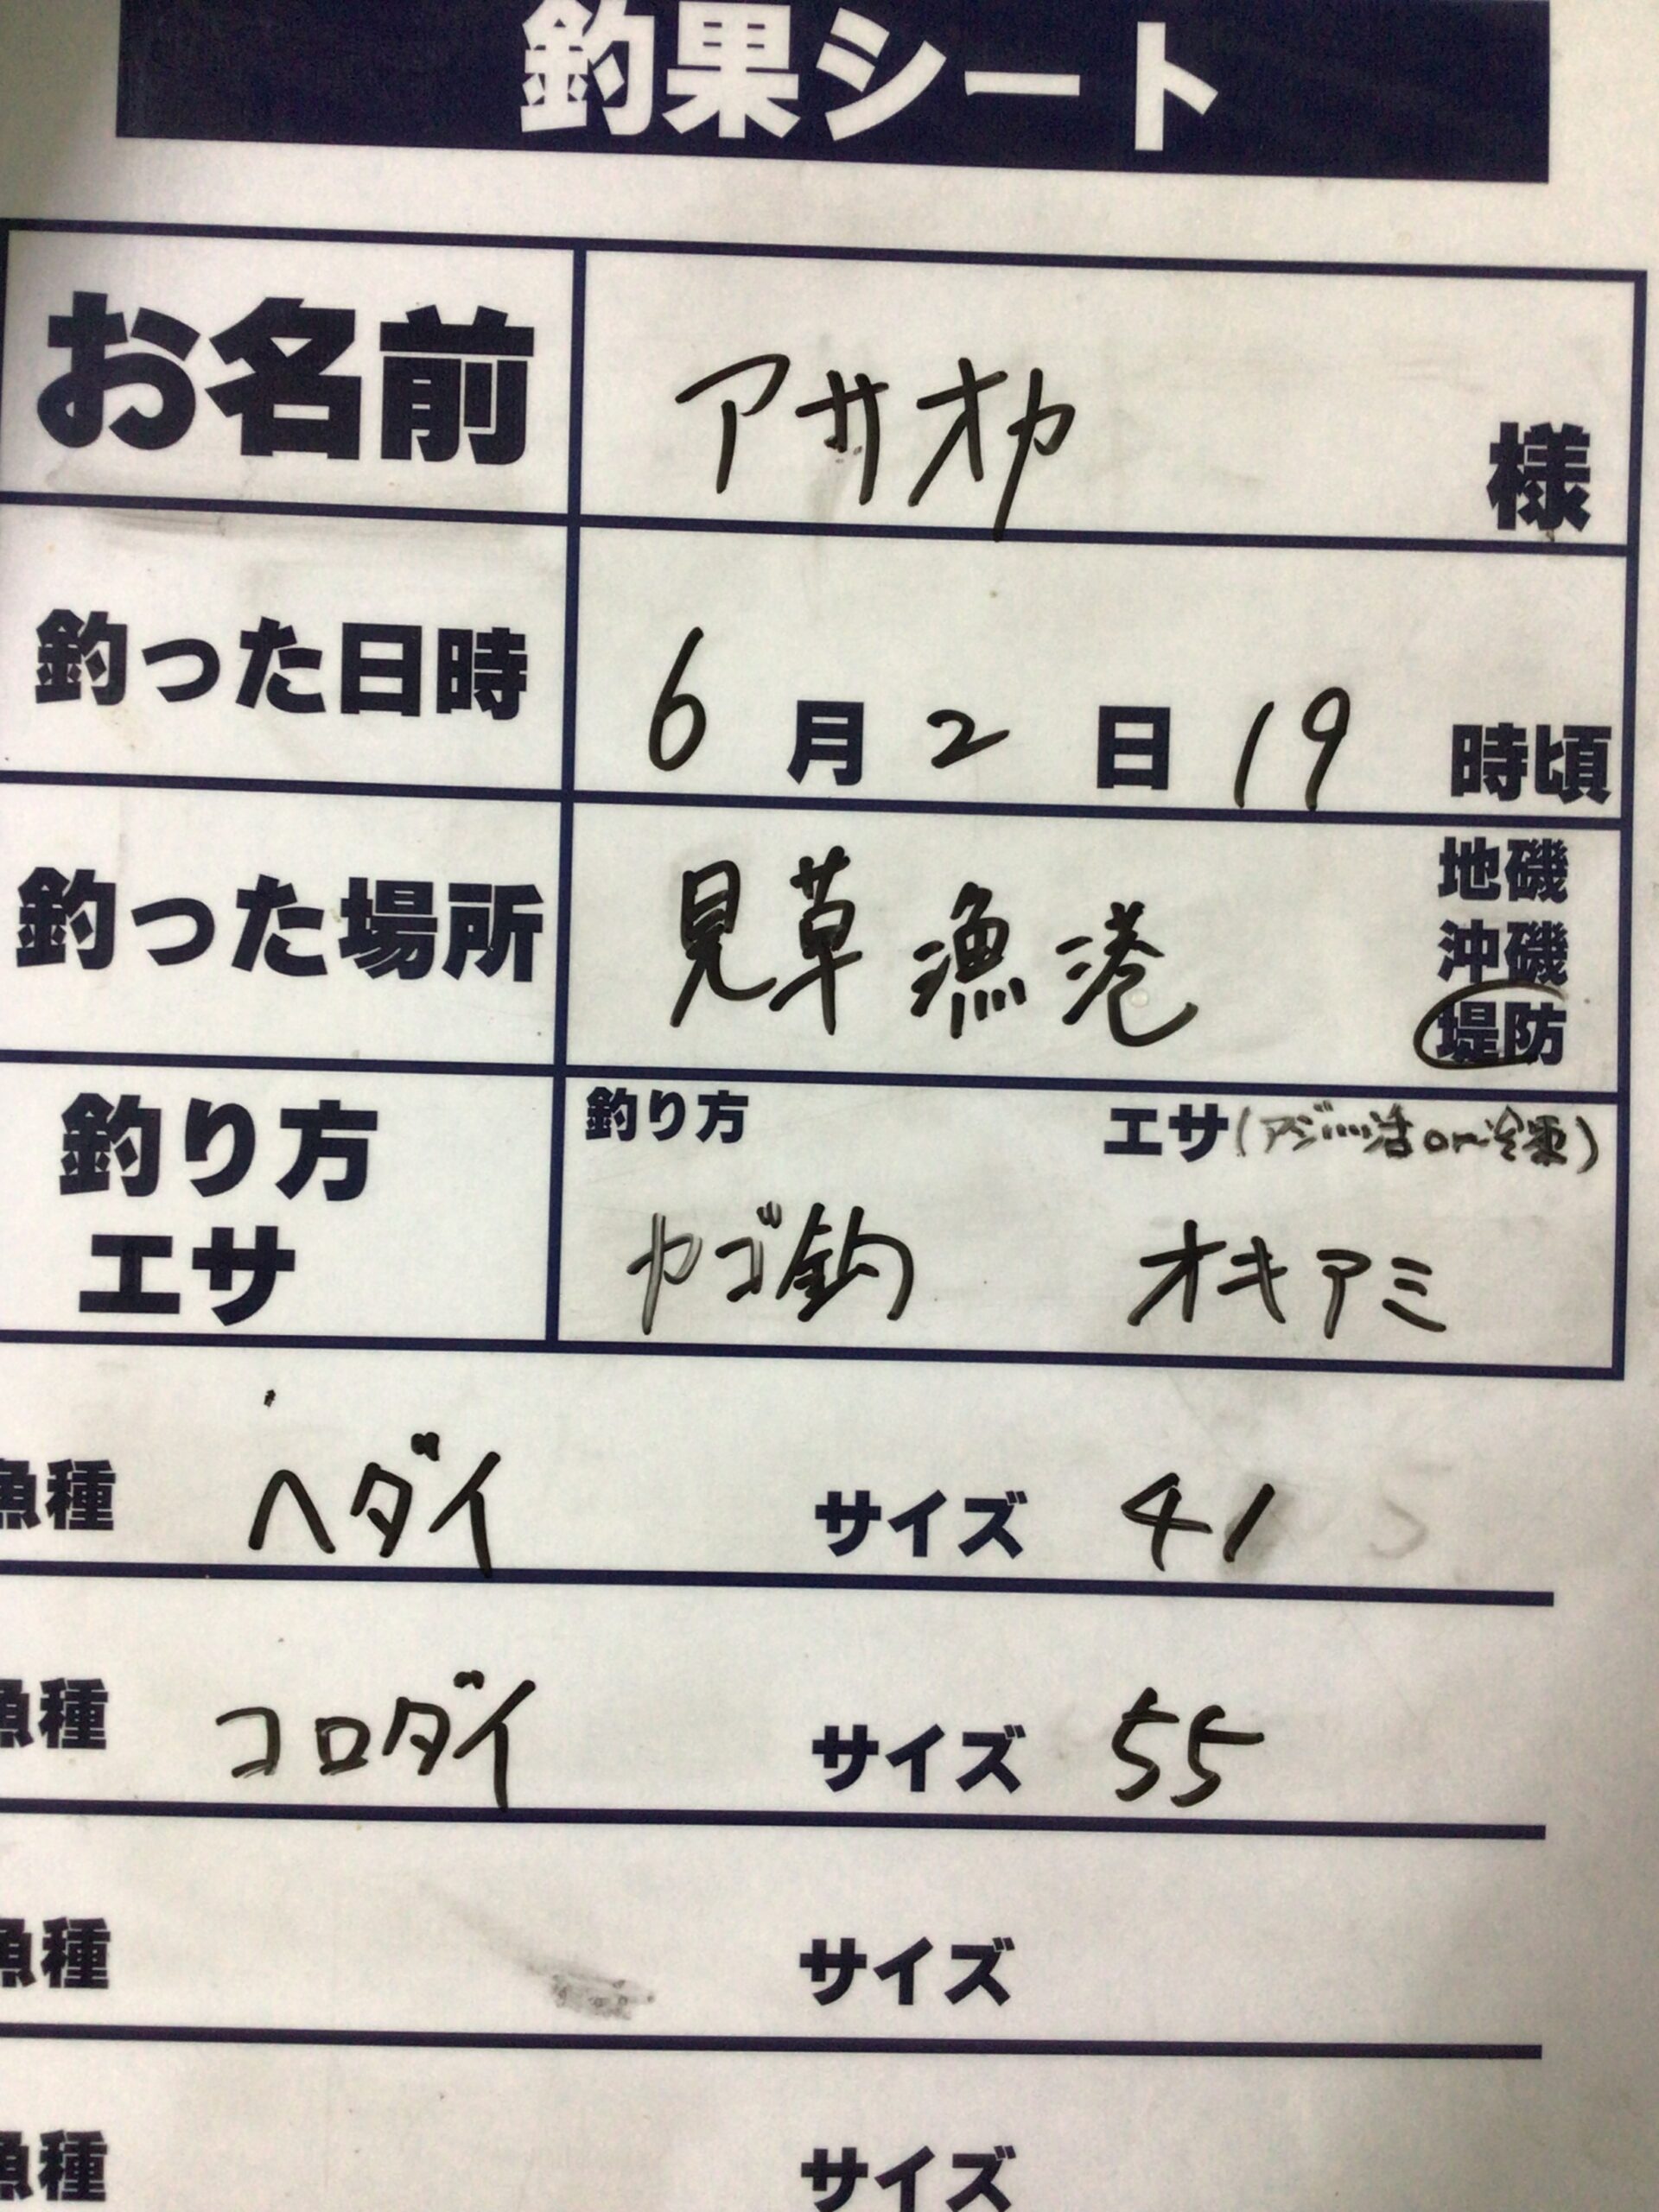 釣果シート
お名前 アサオカ 様
釣った日時 6月2日19時頃
釣った場所 見草漁港 地磯
沖磯
堤防
釣り方 釣り方 エサ(アジ…活or冷凍)
エサ カゴ釣 オキアミ
魚種 ヘダイ サイズ 41
魚種 コロダイ サイズ 55
魚種 サイズ
魚種 サイズ